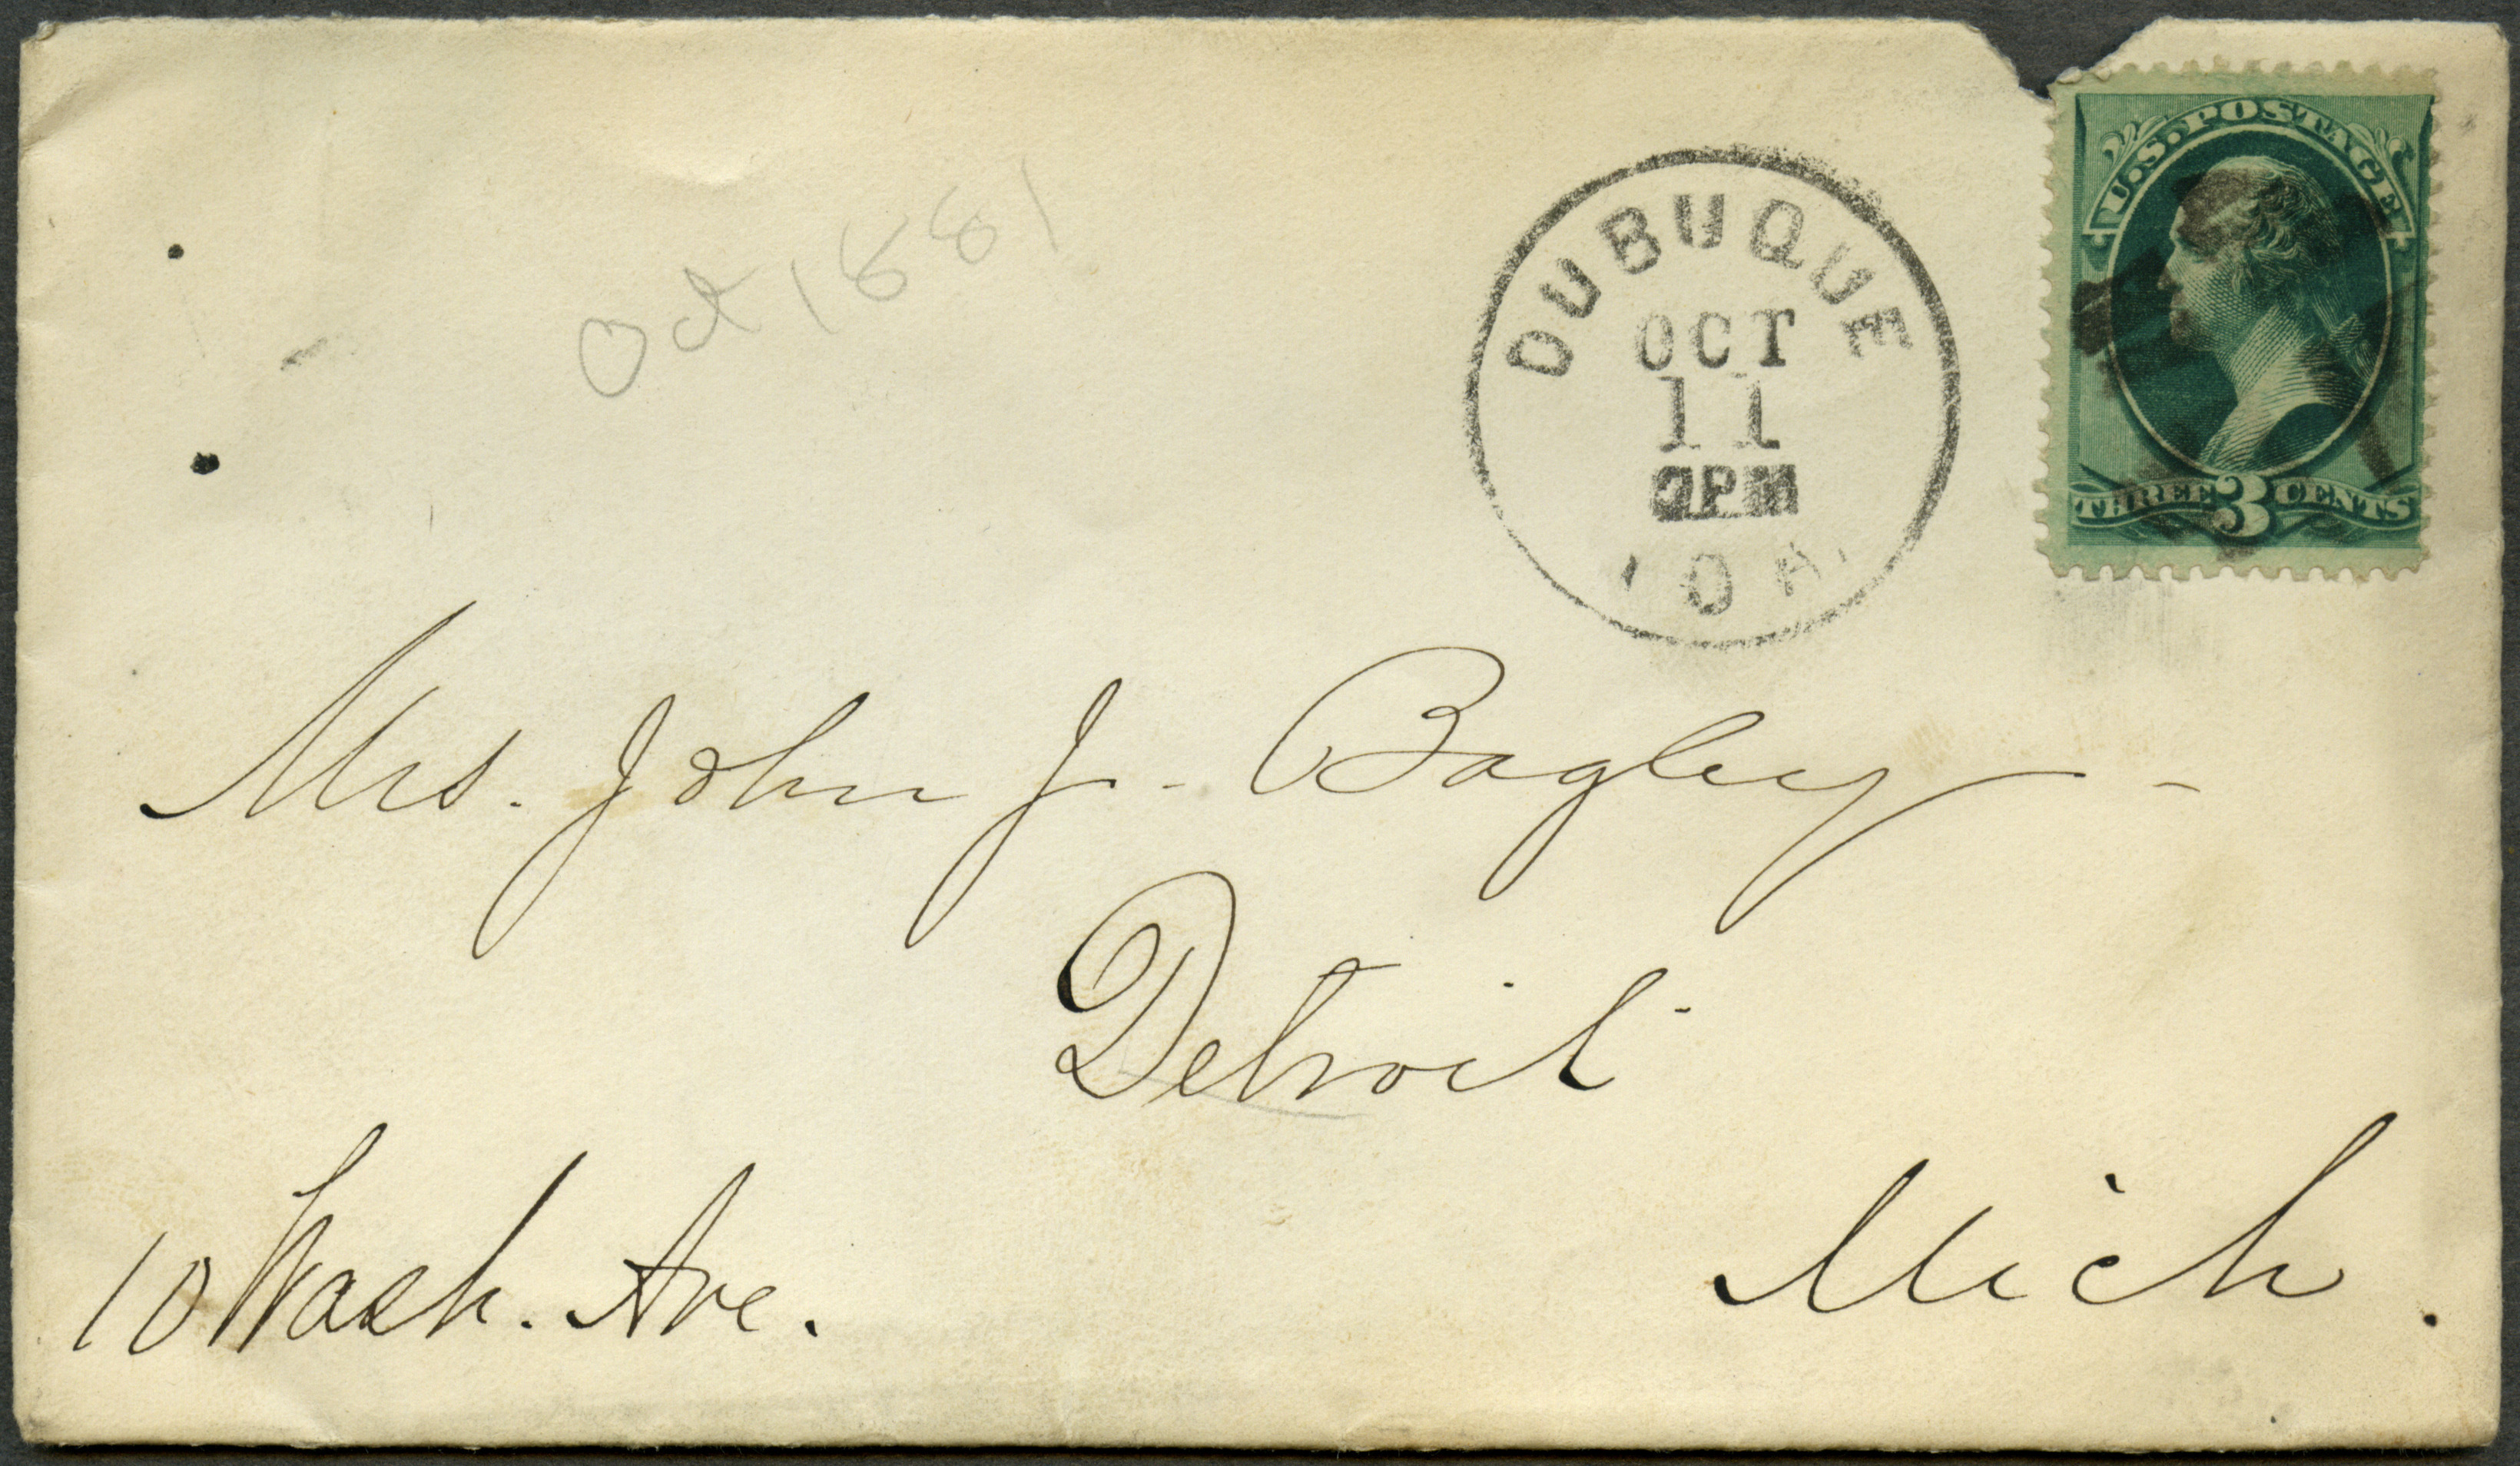 Oct 1881
DUBUQUE
OCT
11
7PM
IOA.
U.S. POSTAGE
THREE 3 CENTS
Mrs. John J. Bagley -
Detroit
Mich.
10 Wash. Ave.